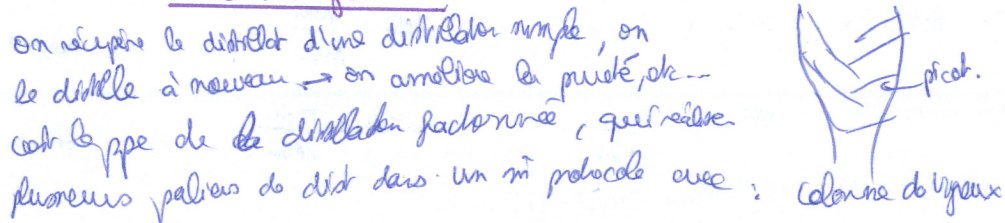 on récupère le distillat d'une distillation simple, on
le distille à nouveau → on améliore la pureté, etc...
c'est le ppe de la distillation fractionnée, qui réalise
plusieurs paliers de dist dans un m̂ protocole avec : colonne de Vigreux
picot.